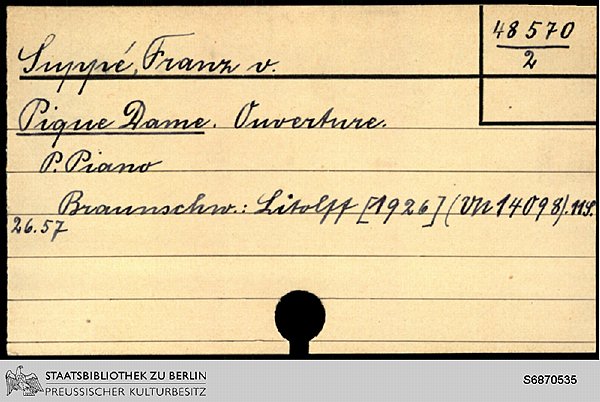 48 570
2
Suppé, Franz v.
Pique Dame. Ouverture.
P. Piano
Braunschw.: Litolff [1926] (VN 14098). 11 S.
26.57
STAATSBIBLIOTHEK ZU BERLIN
PREUSSISCHER KULTURBESITZ
S6870535